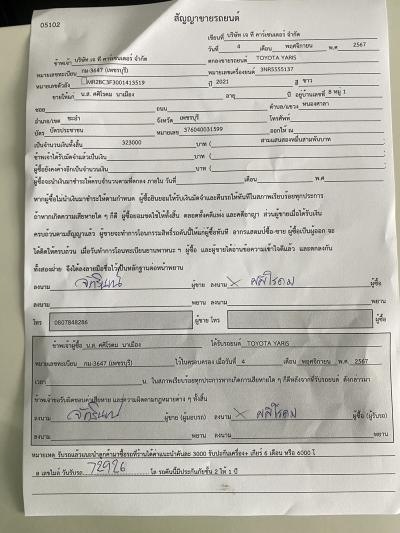 สัญญาขายรถยนต์
05102
เขียนที่ บริษัท เจ ที คาร์เซนเตอร์ จำกัด
วันที่ 4 เดือน พฤศจิกายน พ.ศ 2567
ข้าพเจ้า บริษัท เจ ที คาร์เซนเตอร์ จำกัด ตกลงขายรถยนต์ TOYOTA YARIS
หมายเลขทะเบียน กม-3647 (เพชรบุรี) หมายเลขเครื่องยนต์ 3NR5555137
หมายเลขตัวถัง MR2BC3F3001413519 ปี 2021 สี ขาว
ขายให้แก่ น.ส. ศศิโรดม นาเมือง อายุ ปี อยู่บ้านเลขที่ 8 หมู่ 1
ซอย ถนน ตำบล/แขวง หนองศาลา
อำเภอ/เขต ชะอำ จังหวัด เพชรบุรี โทรศัพท์
บัตร บัตรประชาชน หมายเลข 376040031599 ออกให้ ณ
เป็นจำนวนเงินทั้งสิ้น 323000 บาท ( สามแสนสองหมื่นสามพันบาท
ข้าพเจ้าได้รับมัดจำแล้วเป็นเงิน บาท (
ผู้ซื้อยังคงค้างอีกเป็นจำนวนเงิน บาท (
ผู้ซื้อจะนำเงินมาชำระให้ครบจำนวนตามที่ตกลง ภายใน วันที่ เดือน พ.ศ
หากผู้ซื้อไม่นำเงินมาชำระให้ตามกำหนด ผู้ซื้อยินยอมให้รับเงินมัดจำและคืนรถให้ทันทีในสภาพเรียบร้อยทุกประการ
ถ้าหากเกิดความเสียหายใด ๆ ก็ดี ผู้ซื้อยอมชดใช้ให้ทั้งสิ้น ตลอดทั้งคดีแพ่ง และคดีอาญา ส่วนผู้ขายเมื่อได้รับเงิน
ครบถ้วนตามสัญญาแล้ว ผู้ขายจะทำการโอนกรรมสิทธิ์รถคันนี้ให้แก่ผู้ซื้อทันที อากรแสตมป์ซื้อ-ขาย ผู้ซื้อเป็นผู้ออก จะ
ได้คิดให้ครบถ้วน เมื่อวันทำการโอนทะเบียนยานพาหนะ ฯ ผู้ซื้อ และผู้ขายได้อ่านข้อความเข้าใจดีแล้ว และตกลงกัน
ทั้งสองฝ่าย จึงได้ลงลายมือชื่อไว้เป็นหลักฐานต่อหน้าพยาน
ลงนาม ผู้ขาย ลงนาม ผู้ซื้อ
ลงนาม พยาน ลงนาม พยาน
โทร 0807848286 ผู้ขาย โทร ผู้ซื้อ
ข้าพเจ้าผู้ซื้อ น.ส. ศศิโรดม นาเมือง ได้รับรถยนต์ TOYOTA YARIS
หมายเลขทะเบียน กม-3647 (เพชรบุรี) ไว้ในครอบครอง เมื่อวันที่ 4 เดือน พฤศจิกายน พ.ศ. 2567
เวลา น. ในสภาพเรียบร้อยทุกประการหากเกิดการเสียหายใด ๆ ก็ดีหลังจากที่รับรถยนต์ ดังกล่าวมา
ข้าพเจ้าขอรับผิดชอบค่าเสียหาย และความผิดตามกฎหมายต่าง ๆ ทั้งสิ้น
ลงนาม ผู้ขาย (ผู้มอบรถ) ลงนาม ผู้ซื้อ (ผู้รับรถ)
ลงนาม พยาน ลงนาม พยาน
หมายเหตุ รับรถแล้วแนะนำลูกค้ามาซื้อรถที่ร้านได้ค่าแนะนำคันละ 3000 รับประกันเครื่อง+ เกียร์ 6 เดือน หรือ 6000 โ
ล เลขไมล์ วันรับรถ 72926 โล รถคันนี้มีประกันภัยชั้น 2 ให้ 1 ปี